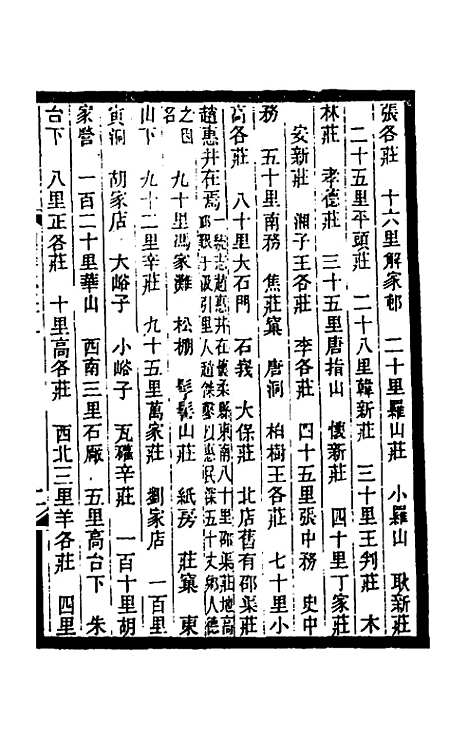 張各莊 十六里解家邨 二十里羅山莊 小羅山 耿新莊
二十五里平頭莊 二十八里韓新莊 三十里王判莊 木
林莊 孝德莊 三十五里唐指山 懷新莊 四十里丁家莊
安新莊 湘子王各莊 李各莊 四十五里張中務 史中
務 五十里南務 焦莊窠 唐洞 柏樹王各莊 七十里小
高各莊 八十里大石門 石峩 大保莊 北店舊有邵渠莊
趙惠井在焉 一統志趙惠井在懷柔縣東南八十里邵渠莊地高
邨艱于汲引里人趙傑鑿以惠民深五十丈鄉人德
之因名 九十里馮家灘 松棚 髽髻山莊 紙房 莊窠 東
山下 九十二里辛莊 九十五里萬家莊 劉家店 一百里
寅洞 胡家店 大峪子 小峪子 瓦礶辛莊 一百十里胡
家營 一百二十里華山 西南三里石厰 五里高台下 朱
台下 八里正各莊 十里高各莊 西北三里羊各莊 四里